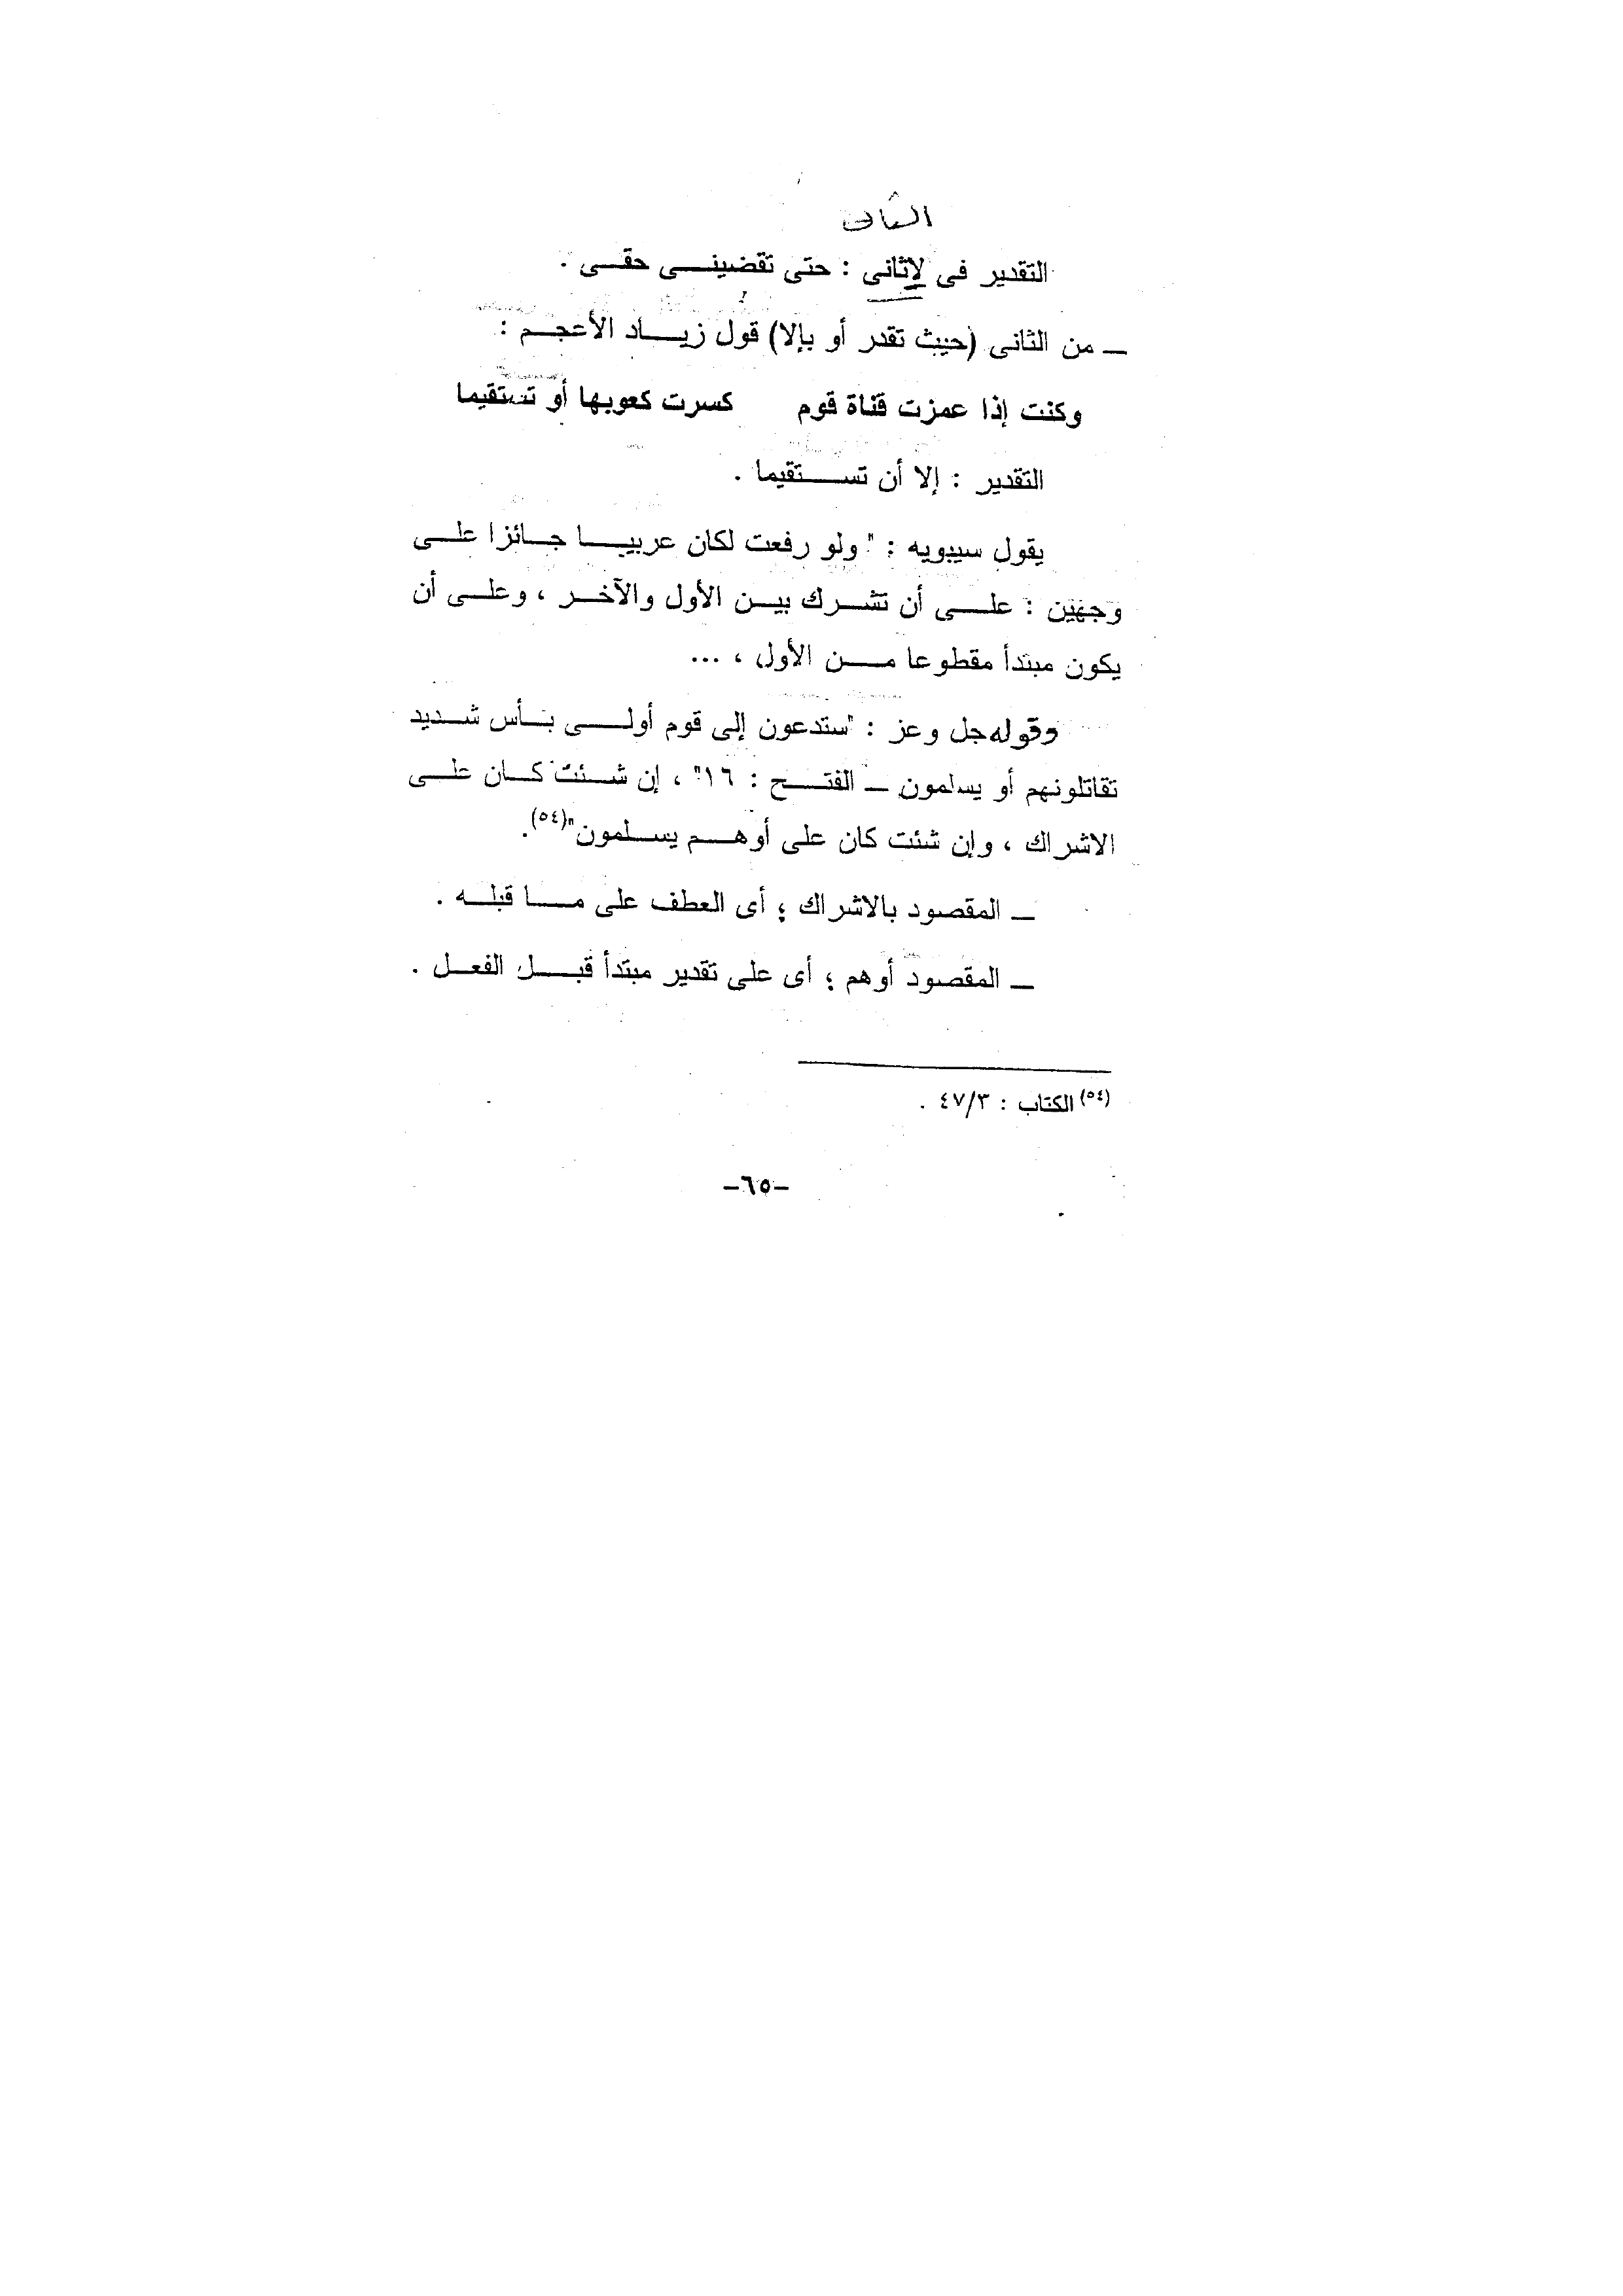 الثانى
التقدير فى لإثانى : حتى تقضينى حقى .
ــ من الثانى (حيث تقدر أو بإلا) قول زياد الأعجم :
وكنت إذا عمزت قناة قوم كسرت كعوبها أو تستقيما
التقدير : إلا أن تستقيما .
يقول سيبويه : " ولو رفعت لكان عربيا جائزا على
وجهين : على أن تشرك بين الأول والآخر ، وعلى أن
يكون مبتدأ مقطوعا من الأول ، ...
وقوله جل وعز : "ستدعون إلى قوم أولى بأس شديد
تقاتلونهم أو يسلمون ــ الفتح : ١٦" ، إن شئت كان على
الاشراك ، وإن شئت كان على أوهم يسلمون"(٥٤).
ــ المقصود بالاشراك ؛ أى العطف على ما قبله .
ــ المقصود أوهم ؛ أى على تقدير مبتدأ قبل الفعل .
(٥٤) الكتاب : ٤٧/٣ .
-٦٥-